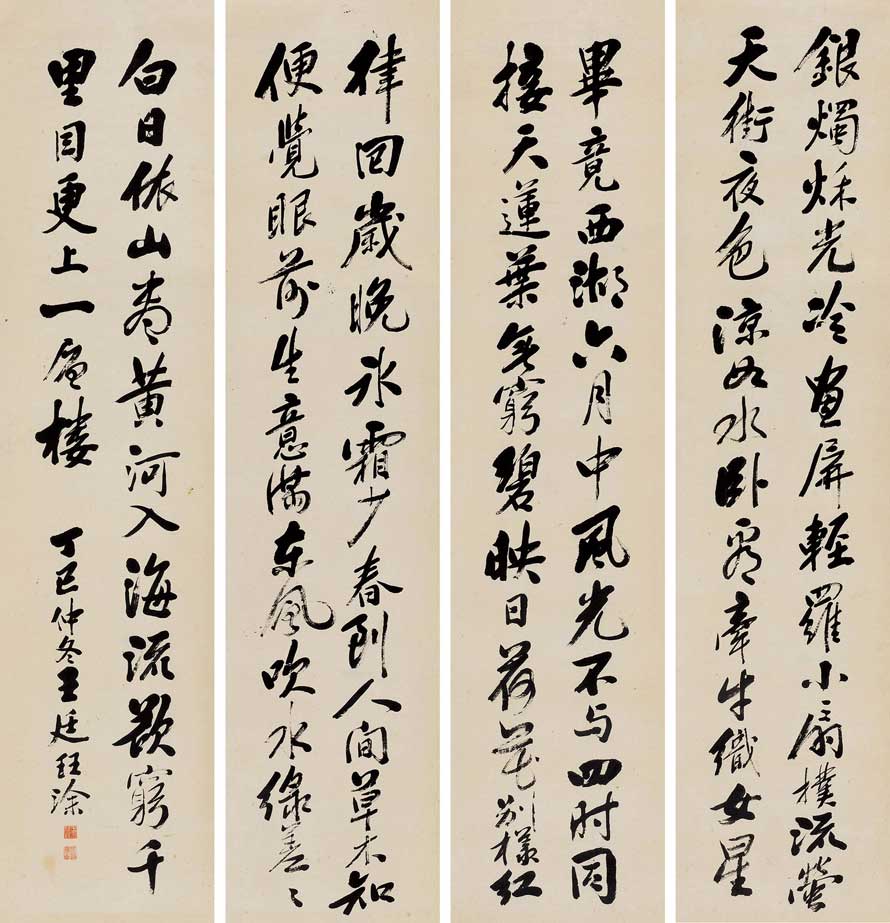 銀燭秌光冷畫屏輕羅小扇撲流螢
天街夜色涼如水臥看牽牛織女星
畢竟西湖六月中風光不与四时同
接天蓮葉無窮碧映日荷花别樣红
律回歲晚氷霜少春到人间草木知
便覺眼前生意滿東風吹水綠差〻
白日依山盡黃河入海流欲窮千
里目更上一層樓
丁巳仲冬王廷鈺涂